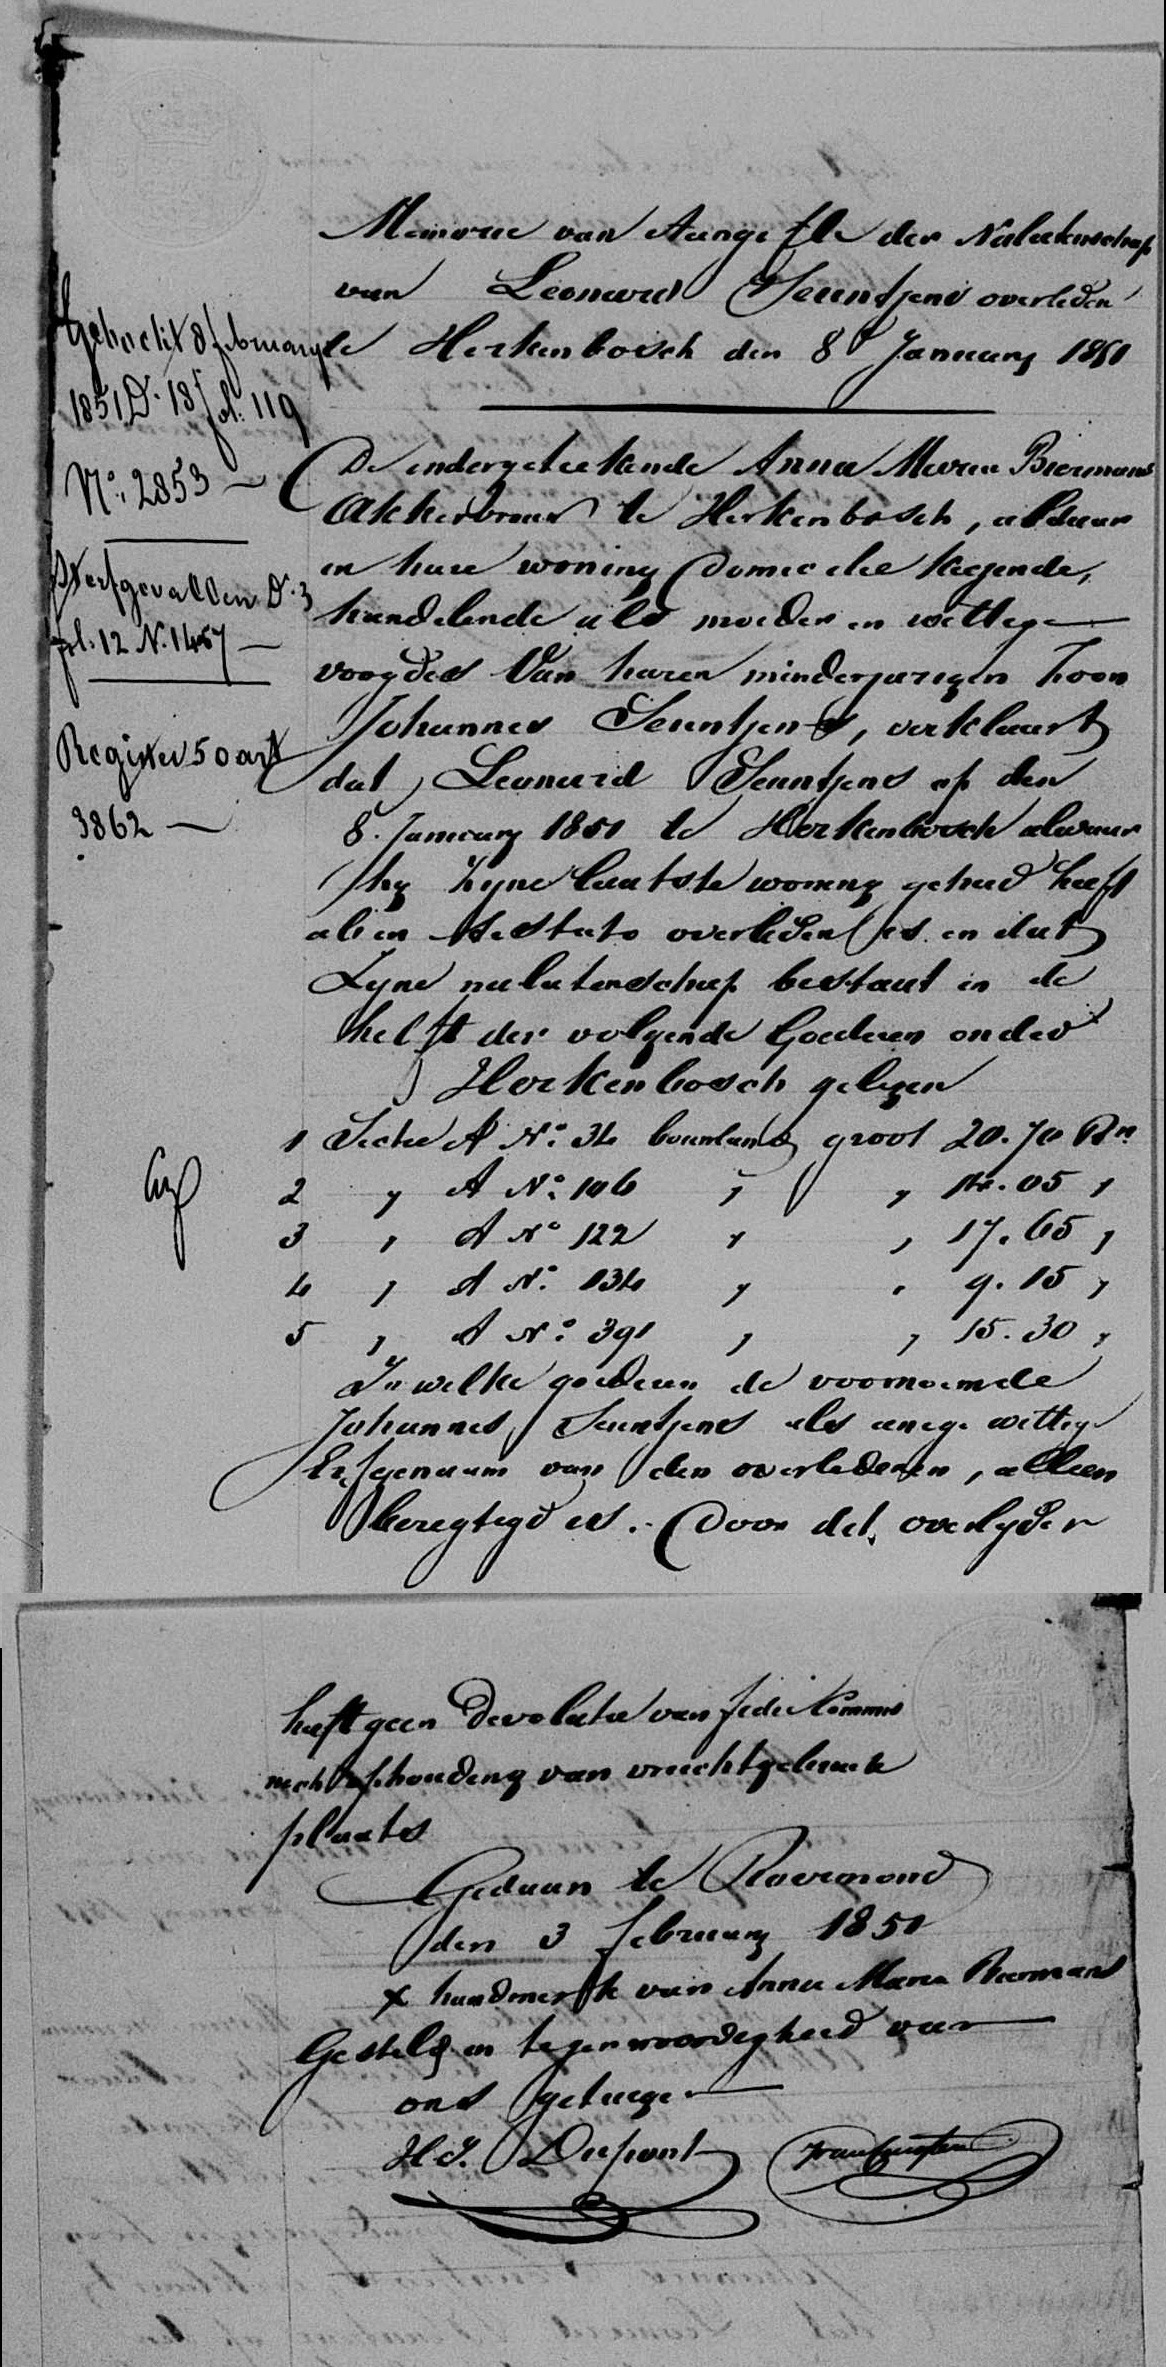 Memorie van Aangifte der Nalatenschap
van Leonard Seuntjens overleden
te Herkenbosch den 8 January 1851
Geboekt 8 february
1851 D. 13 fol: 119
No: 2853
Sterfgevallen D. 3
fol. 12 N. 1457
Register 50 art
3862
De ondergeteekende Anna Maria Biermans
Akkervrouw te Herkenbosch, aldaar
in hare woning domicilie kiezende,
handelende als moeder en wettige
voogdes van haren minderjarigen zoon
Johannes Seuntjens, verklaart
dat Leonard Seuntjens op den
8. January 1851 te Herkenbosch alwaar
hy zyne laatste woning gehad heeft
ab in testato overleden is en dat
zyne nalatenschap bestaat in de
helft der volgende Goederen onder
Herkenbosch gelegen
1 Sectie A No. 34 bouwland groot 20.70 Rn
2 " A No. 106 " " 14.05 "
3 " A No 122 " " 17.65 "
4 " A No. 134 " " 9.15 "
5 " A No. 391 " " 15.30 "
In welke goederen de voornoemde
Johannes Seuntjens als eenige wettige
Erfgenaam van den overledenen, alleen
beregtigd is. Door het overlyden
heeft geen devolutie van fidei Kommis
noch afhouding van vruchtgebruik
plaats
Gedaan te Roermond
den 3 february 1851
x handmerk van Anna Maria Biermans
Gesteld in tegenwoordigheid van
ons getuige
H.J. Dupont